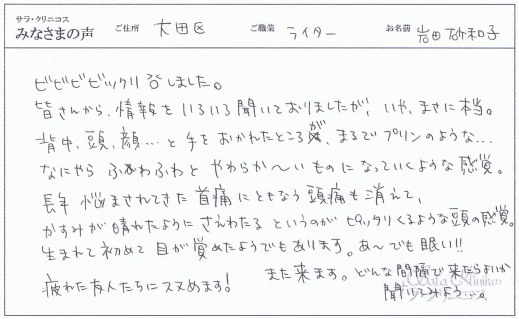 サラ・クリニコス
みなさまの声 ご住所 大田区 ご職業 ライター お名前 岩田 砂和子
ビビビビックリ しました。
皆さんから、情報をいろいろ聞いておりましたが、いや、まさに本当。
背中、頭、顔…と手をおかれたところが、まるでプリンのような…
なにやら ふわふわと やわらか〜いものに なっていくような感覚。
長年 悩まされてきた 首痛にともなう 頭痛も消えて、
かすみが晴れたように さえわたる というのが ピッタリくるような頭の感覚。
生まれて初めて 目が覚めたようでもあります。あ〜でも眠い!!
疲れた友人たちにススめます!
また来ます。どんな間隔で来たらよいか
聞いてみよう…。